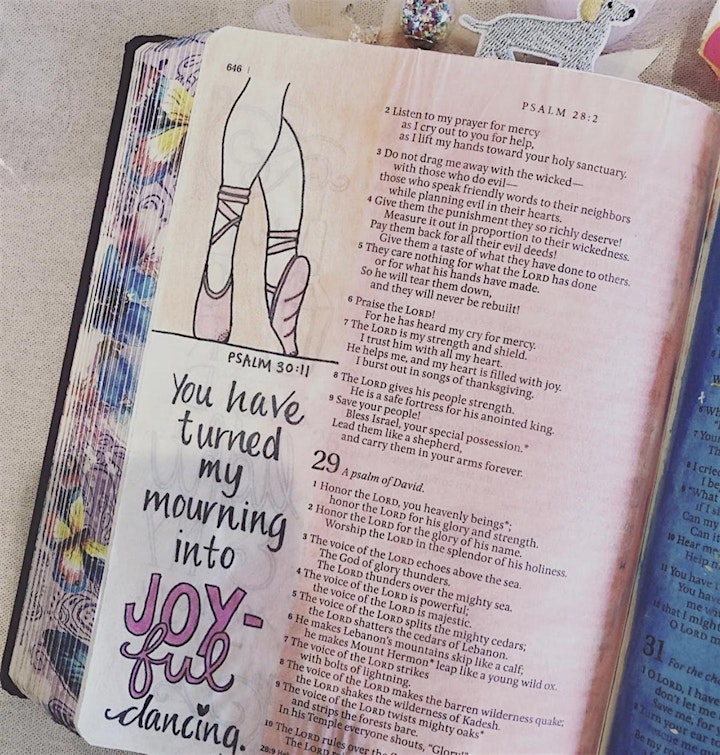 646
PSALM 28:2
PSALM 30:11
You have
turned
my
mourning
into
JOY-
ful
dancing.
2 Listen to my prayer for mercy
as I cry out to you for help,
as I lift my hands toward your holy sanctuary.
3 Do not drag me away with the wicked—
with those who do evil—
those who speak friendly words to their neighbors
while planning evil in their hearts.
4 Give them the punishment they so richly deserve!
Measure it out in proportion to their wickedness.
Pay them back for all their evil deeds!
Give them a taste of what they have done to others.
5 They care nothing for what the LORD has done
or for what his hands have made.
So he will tear them down,
and they will never be rebuilt!
6 Praise the LORD!
For he has heard my cry for mercy.
7 The LORD is my strength and shield.
I trust him with all my heart.
He helps me, and my heart is filled with joy.
I burst out in songs of thanksgiving.
8 The LORD gives his people strength.
He is a safe fortress for his anointed king.
9 Save your people!
Bless Israel, your special possession.*
Lead them like a shepherd,
and carry them in your arms forever.
29 A psalm of David.
1 Honor the LORD, you heavenly beings*;
honor the LORD for his glory and strength.
2 Honor the LORD for the glory of his name.
Worship the LORD in the splendor of his holiness.
3 The voice of the LORD echoes above the sea.
The God of glory thunders.
The LORD thunders over the mighty sea.
4 The voice of the LORD is powerful;
the voice of the LORD is majestic.
5 The voice of the LORD splits the mighty cedars;
the LORD shatters the cedars of Lebanon.
6 He makes Lebanon's mountains skip like a calf;
he makes Mount Hermon* leap like a young wild ox.
7 The voice of the LORD strikes
with bolts of lightning.
8 The voice of the LORD makes the barren wilderness quake;
the LORD shakes the wilderness of Kadesh.
9 The voice of the LORD twists mighty oaks*
and strips the forests bare.
In his Temple everyone shouts, "Glory!"
10 The LORD rules over the
The LORD
28:9
31 For the
1 O LORD, I have
don't let me
Save me, for